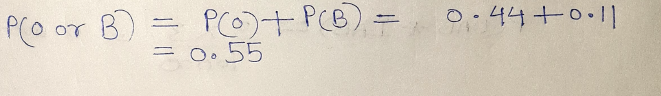 P(O or B) = P(O)+P(B) = 0.44+0.11
= 0.55